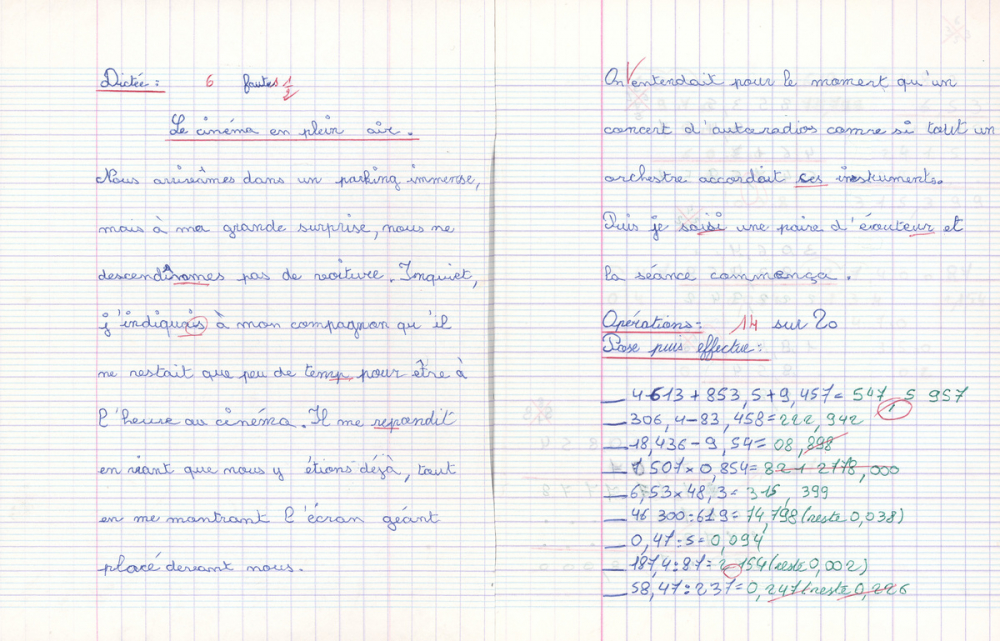 Dictée : 6 fautes 1/2
Le cinéma en plein air.
Nous arrivâmes dans un parking immense,
mais à ma grande surprise, nous ne
descendîmes pas de voiture. Inquiet,
j'indiquais à mon compagnon qu'il
ne restait que peu de temp pour être à
l'heure au cinéma. Il me repondit
en riant que nous y étions déjà, tout
en me montrant l'écran géant
placé devant nous.
On entendait pour le moment qu'un
concert d'autoradios comme si tout un
orchestre accordait ses instruments.
Puis je saisi une paire d'écouteur et
la séance commença.
Opérations : 14 sur 20
Pose puis effectue :
4 613 + 853,5 + 9,457 = 547 , 5 957
306,4 - 83,458 = 222,942
18,436 - 9,54 = 08,898
7 507 x 0,854 = 821 2178,000
6,53 x 48,3 = 315,399
46 300 : 619 = 74,798 (reste 0,038)
0,47 : 5 = 0,094
187,4 : 87 = 2 154 (reste 0,002)
58,47 : 237 = 0,247 (reste 0,226